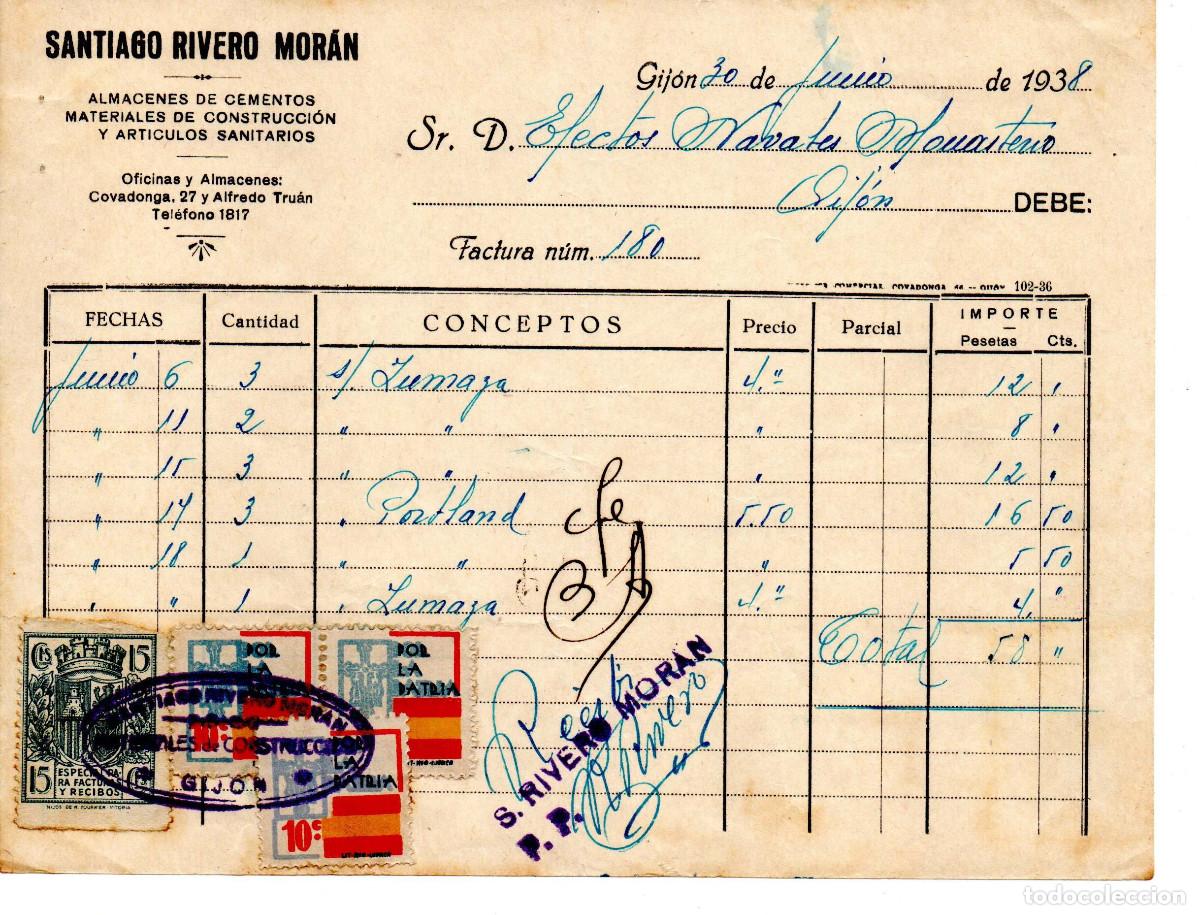 SANTIAGO RIVERO MORÁN
ALMACENES DE CEMENTOS
MATERIALES DE CONSTRUCCIÓN
Y ARTICULOS SANITARIOS
Oficinas y Almacenes:
Covadonga, 27 y Alfredo Truán
Teléfono 1817
Gijón 30 de Junio de 1938
Sr. D. Efectos Navales Monasterio
Gijón DEBE:
Factura núm. 180
COMERCIAL COVADONGA GIJON 102-36
FECHAS Cantidad CONCEPTOS Precio Parcial IMPORTE
Pesetas Cts.
Junio 6 3 s/. Zumaya 4." 12 "
" 11 2 " " " 8 "
" 15 3 " " " 12 "
" 17 3 " Portland 5.50 16 50
" 18 1 " " " 5 50
" " 1 " Zumaya 4." 4. "
Total 58 "
Cts 15
15 Cts
ESPECIAL PA-
RA FACTURAS
Y RECIBOS
POR
LA
PATRIA
10c
POR
LA
PATRIA
POR
LA
PATRIA
10c
SANTIAGO RIVERO MORAN
MATERIALES de CONSTRUCCION
GIJON
Recibi
S. RIVERO MORÁN
P. P.
Rivero
todocoleccion